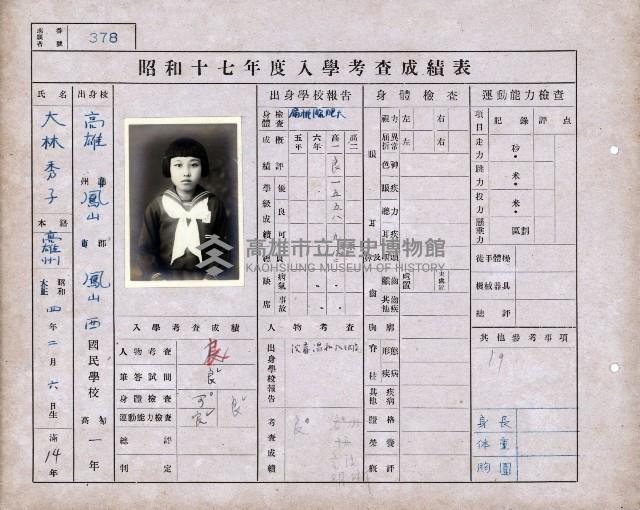 番號
378
昭和十七年度入學考查成績表
氏名
大林秀子
本籍
高雄州
昭和
大正
四年二月六日生
滿14年
出身校
高雄州
鳳山郡
鳳山西國民學校
高
初
一年
出身學校報告
身體檢查
扁桃腺肥大
概評
五年
六年
高一
高二
良
學級成績
優
良
可
一五五八
缺席
病氣
事故
身體檢查
視力
左
右
屈折異常
左
右
色神
眼疾
聽力
耳疾
眼
耳
齒
處置
未處置
其他齒疾
胸廓
脊柱
形態
疾病
其他疾病
體格
榮養
概評
運動能力檢查
項目
記錄
評點
走力
秒
跳力
米
投力
米
懸垂力
徒手體操
機械器具
總評
其他參考事項
19
身長
体重
胸圍
入學考查成績
人物考查
良
筆答試問
良
身體檢查
可
運動能力檢查
良
良
總評
判定
人物考查
出身學校報告
考查成績
良
高雄市立歷史博物館
KAOHSIUNG MUSEUM OF HISTORY